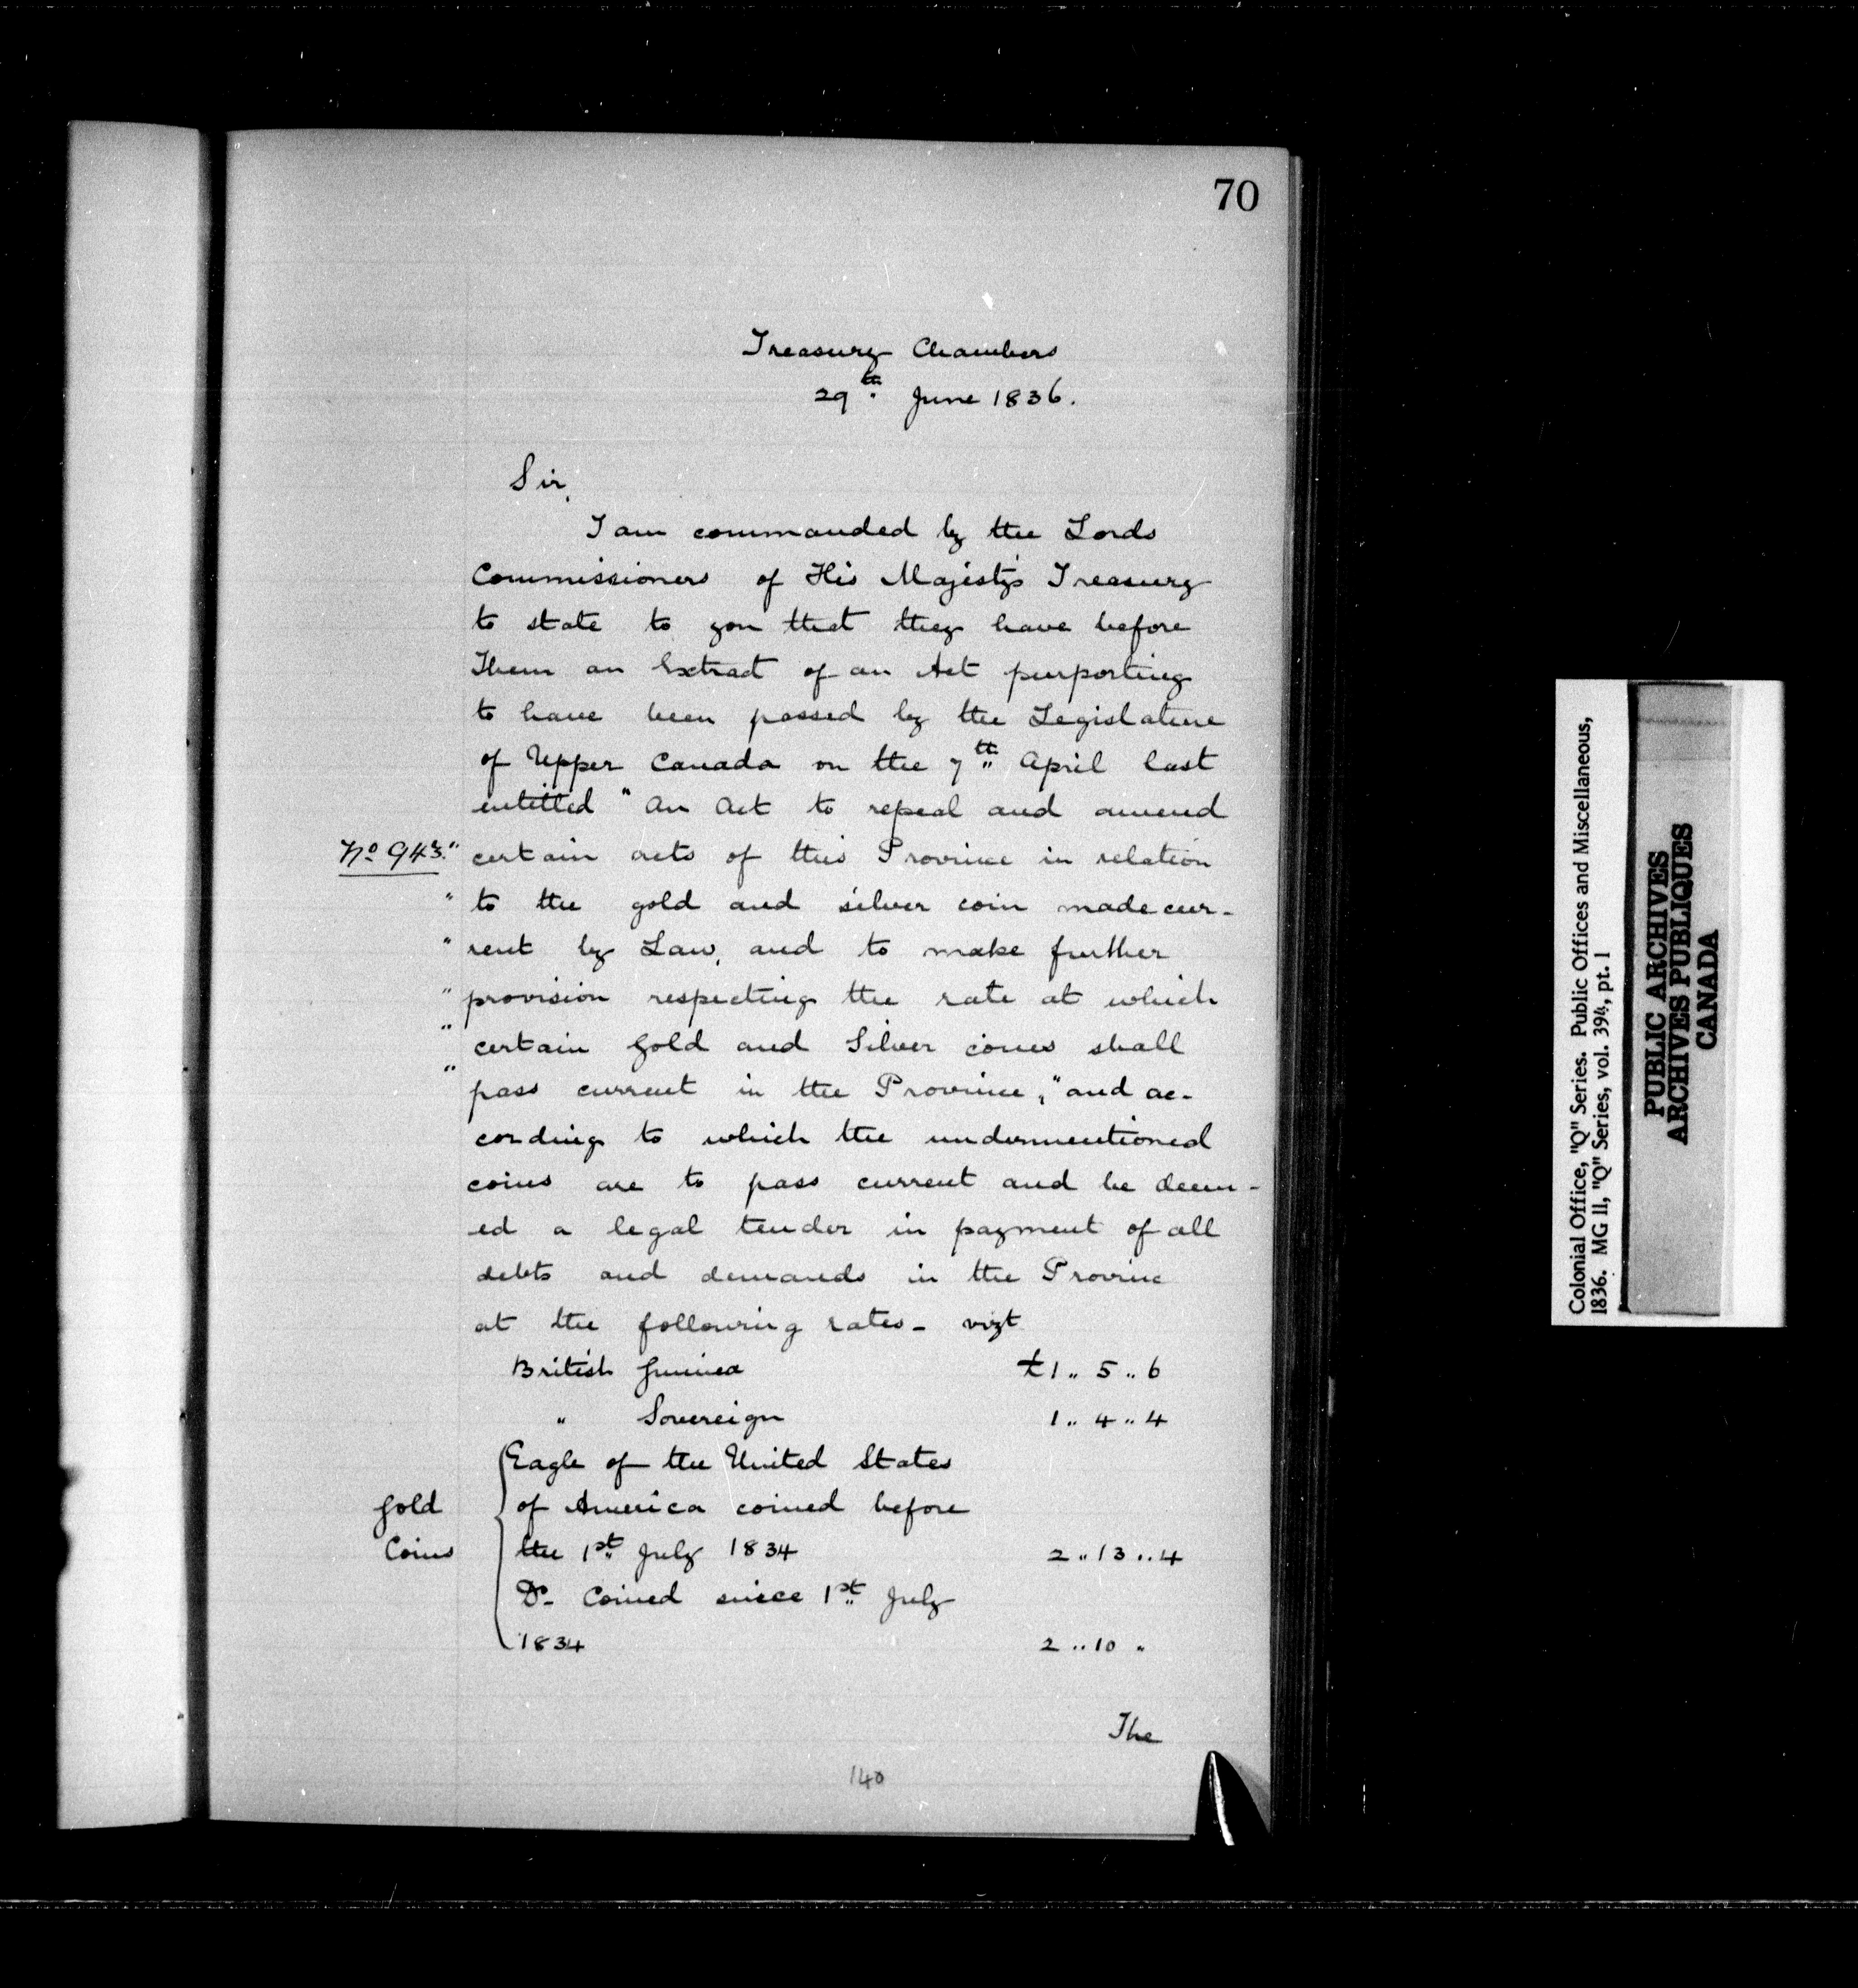 70
Treasury Chambers
29th June 1836.
Sir,
I am commanded by the Lords
Commissioners of His Majesty's Treasury
to state to you that they have before
Them an Extract of an Act purporting
to have been passed by the Legislature
of Upper Canada on the 7th April last
entitled "An Act to repeal and amend
No 943. " certain acts of this Province in relation
" to the gold and silver coin made cur-
" rent by Law, and to make further
" provision respecting the rate at which
" certain Gold and Silver coines shall
" pass current in the Province," and ac-
cording to which the undermentioned
coins are to pass current and be deem-
ed a legal tender in payment of all
debts and demands in the Province
at the following rates - vizt
British Guinea £1 ,, 5 ,, 6
" Sovereign 1 ,, 4 ,, 4
Eagle of the United States
Gold of America coined before
Coins the 1st July 1834 2 ,, 13 ,, 4
Do Coined since 1st July
1834 2 ,, 10 ,,
The
140
Colonial Office, "Q" Series. Public Offices and Miscellaneous,
1836. MG 11, "Q" Series, vol. 394, pt. 1
PUBLIC ARCHIVES
ARCHIVES PUBLIQUES
CANADA